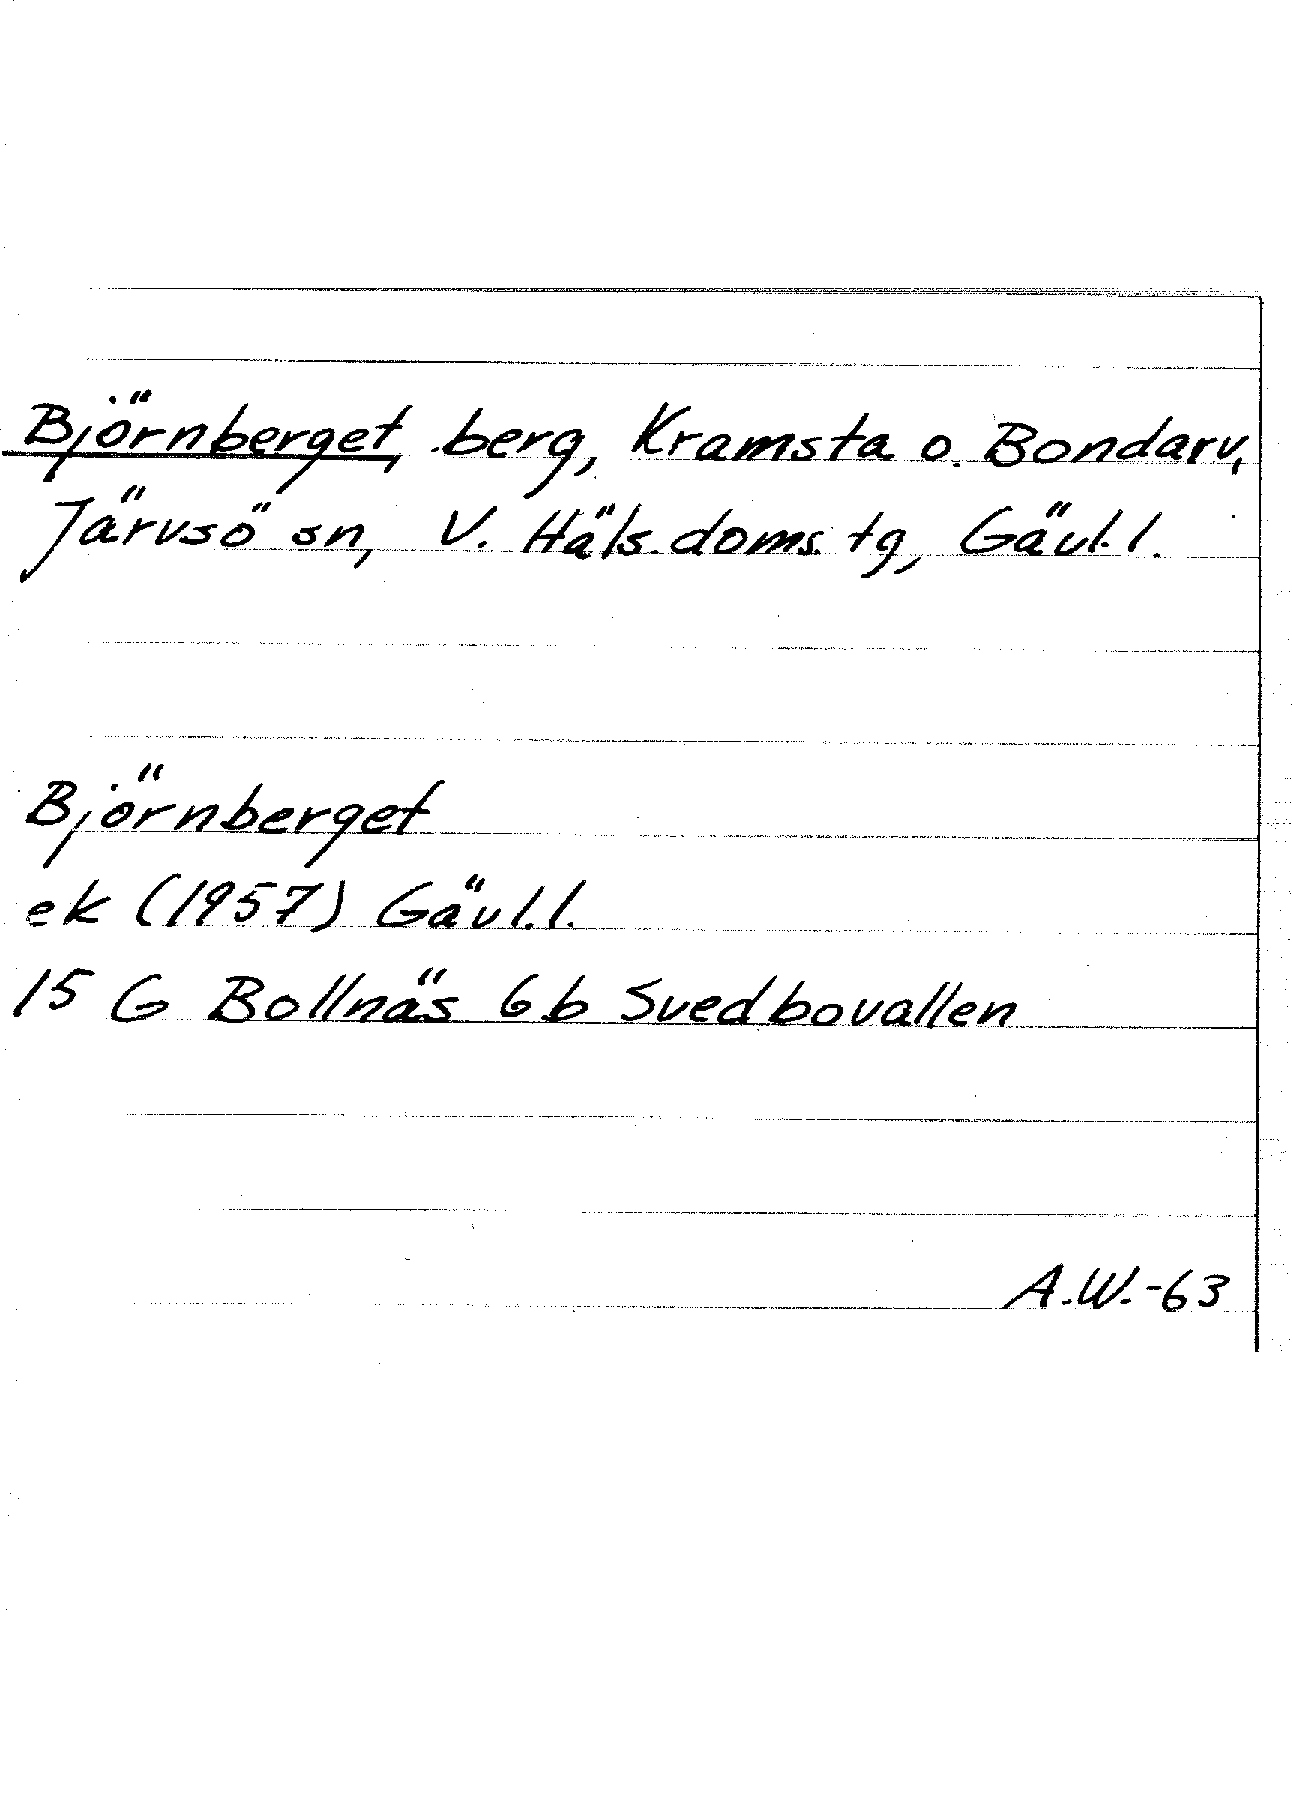 Björnberget, berg, Kramsta o. Bondarv,
Järvsö sn, V. Häls. doms. tg, Gävl. l.
Björnberget
ek (1957) Gävl. l.
15 G Bollnäs 6b Svedbovallen
A.W.-63